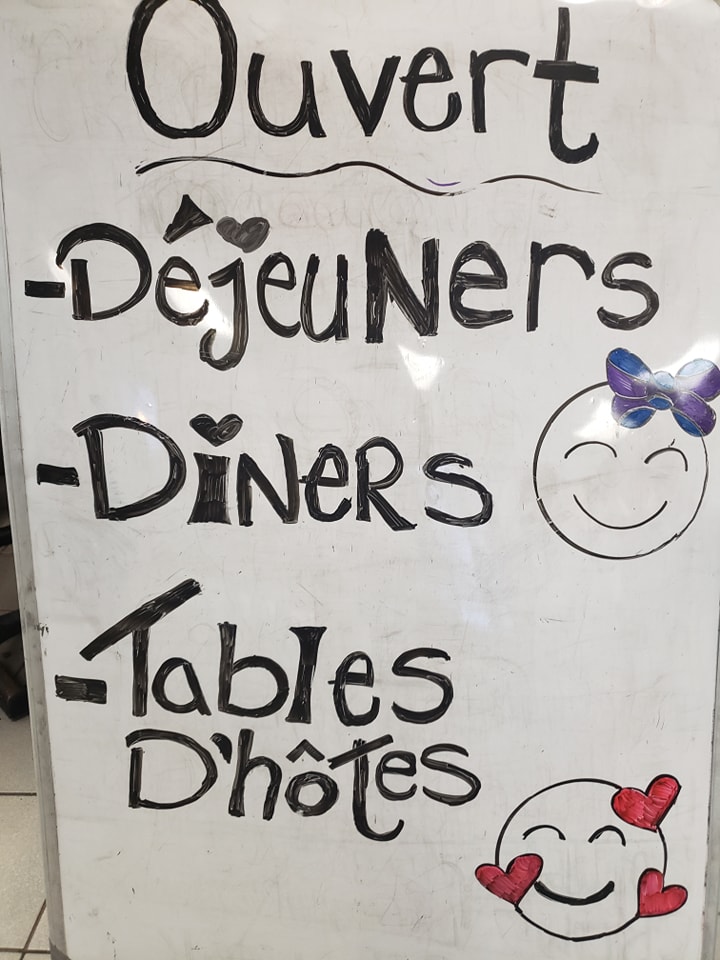 Ouvert
-DéjeuNers
-DiNeRs
-Tables
D'hôtes